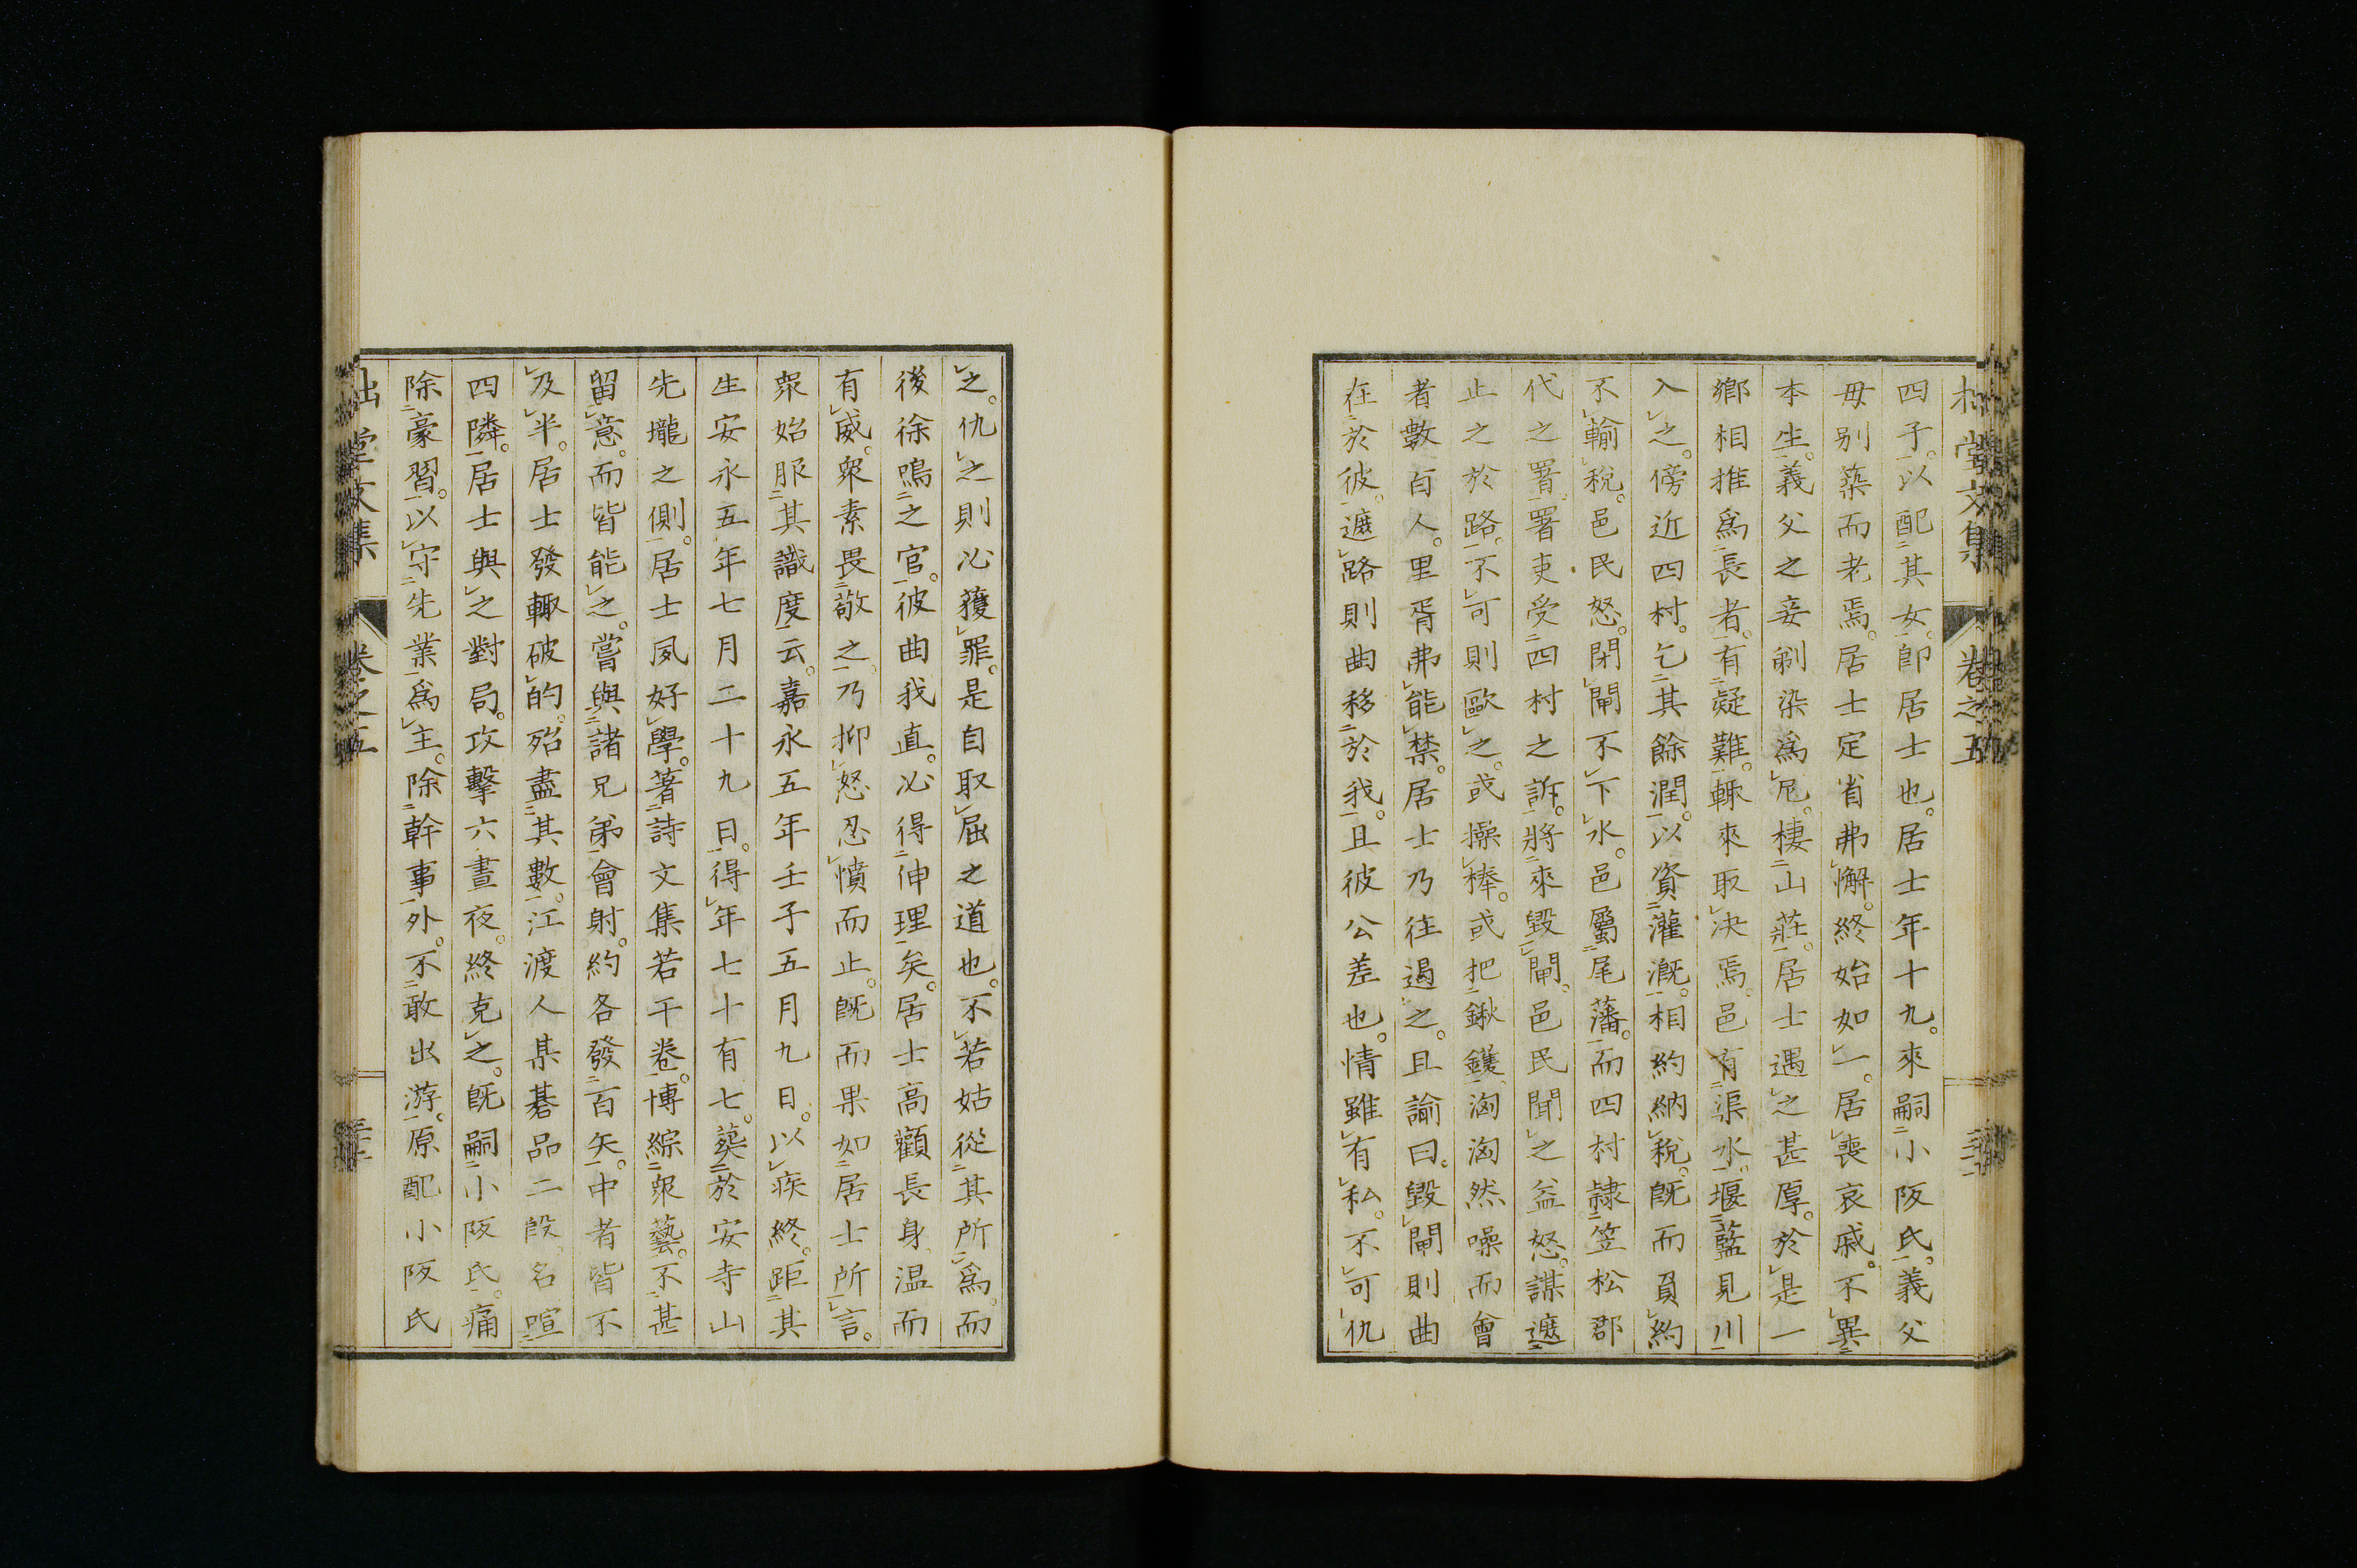 四子。以配其女。卽居士也。居士年十九。來嗣小阪氏。義父
母別築而老焉。居士定省弗懈。終始如一。居喪哀戚。不異
本生。義父之妾剃染爲尼。棲山莊。居士遇之甚厚。於是一
鄉相推爲長者。有疑難。輒來取決焉。邑有渠水。堰藍見川
入之。傍近四村。乞其餘潤。以資灌漑。相約納稅。旣而負約
不輸稅。邑民怒。閉閘不下水。邑屬尾藩。而四村隷笠松郡
代之署。署吏受四村之訴。將來毀閘。邑民聞之益怒。謀遮
止之於路。不可則毆之。或操棒。或把鍬钁。洶洶然噪而會
者數百人。里胥弗能禁。居士乃往遏之。且諭曰。毀閘則曲
在於彼。遮路則曲移於我。且彼公差也。情雖有私。不可仇
之。仇之則必獲罪。是自取屈之道也。不若姑從其所爲。而
後徐鳴之官。彼曲我直。必得伸理矣。居士高顴長身、温而
有威。衆素畏敬之。乃抑怒忍憤而止。旣而果如居士所言。
衆始服其識度云。嘉永五年壬子五月九日。以疾終。距其
生安永五年七月二十九日。得年七十有七。葬於安寺山
先壠之側。居士夙好學。著詩文集若干卷。博綜衆藝。不甚
留意。而皆能之。嘗與諸兄弟會射。約各發百矢。中者皆不
及半。居士發輒破的。殆盡其數。江渡人某碁品二段。名喧
四隣。居士與之對局。攻擊六晝夜。終克之。旣嗣小阪氏。痛
除豪習。以守先業爲主。除幹事外。不敢出游。原配小阪氏
堂文集 卷之五